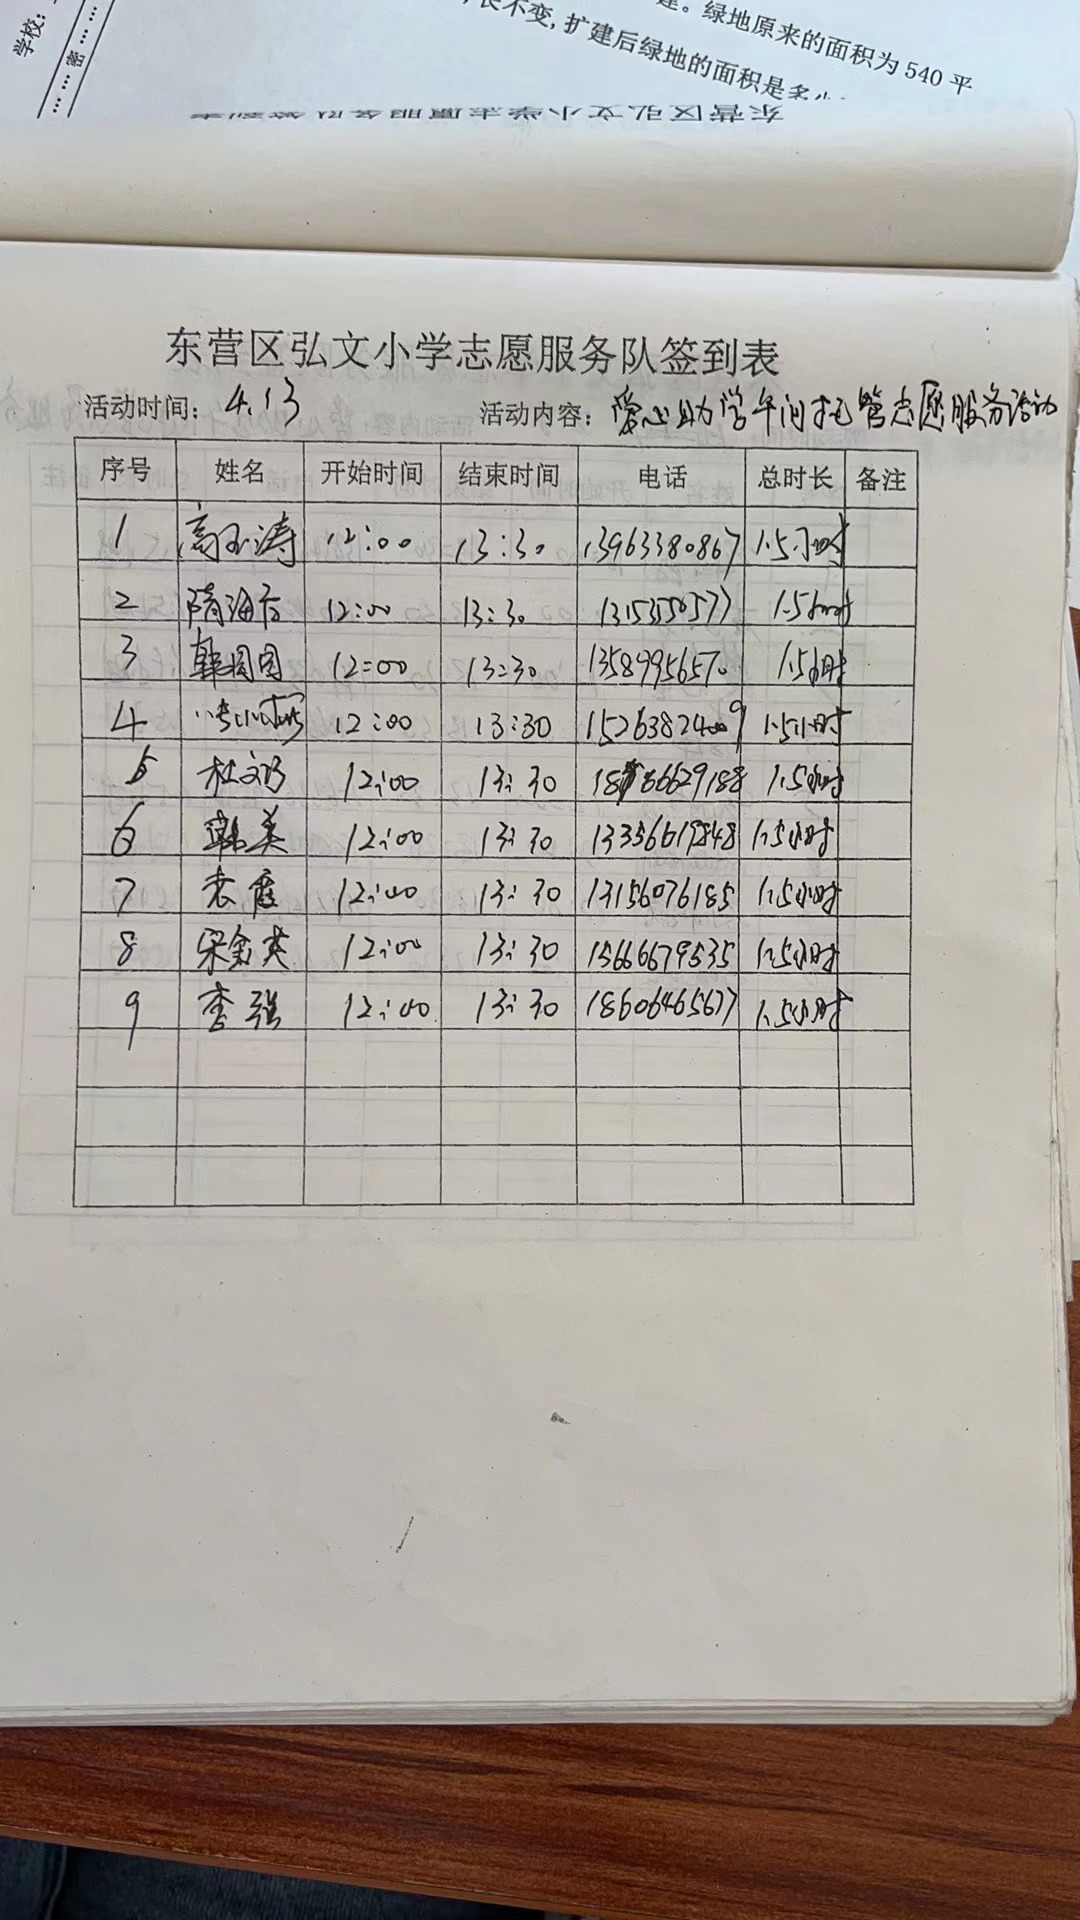 学校:
密
建。绿地原来的面积为 540 平
长不变,扩建后绿地的面积是多少
东营区弘文小学志愿服务队签到表
东营区弘文小学志愿服务队签到表
活动时间: 4.13 活动内容: 爱心助学午间托管志愿服务活动
序号 姓名 开始时间 结束时间 电话 总时长 备注
1 高玉涛 12:00 13:30 13963380867 1.5小时
2 隋海 12:00 13:30 1.5小时
3 韩圆圆 12:00 13:30 13589956570 1.5小时
4 12:00 13:30 15263824009 1.5小时
5 杜文 12:00 13:30 1.5小时
6 韩美 12:00 13:30 1.5小时
7 12:00 13:30 13156076185 1.5小时
8 宋金英 12:00 13:30 15666679535 1.5小时
9 李强 12:00 13:30 18606465677 1.5小时